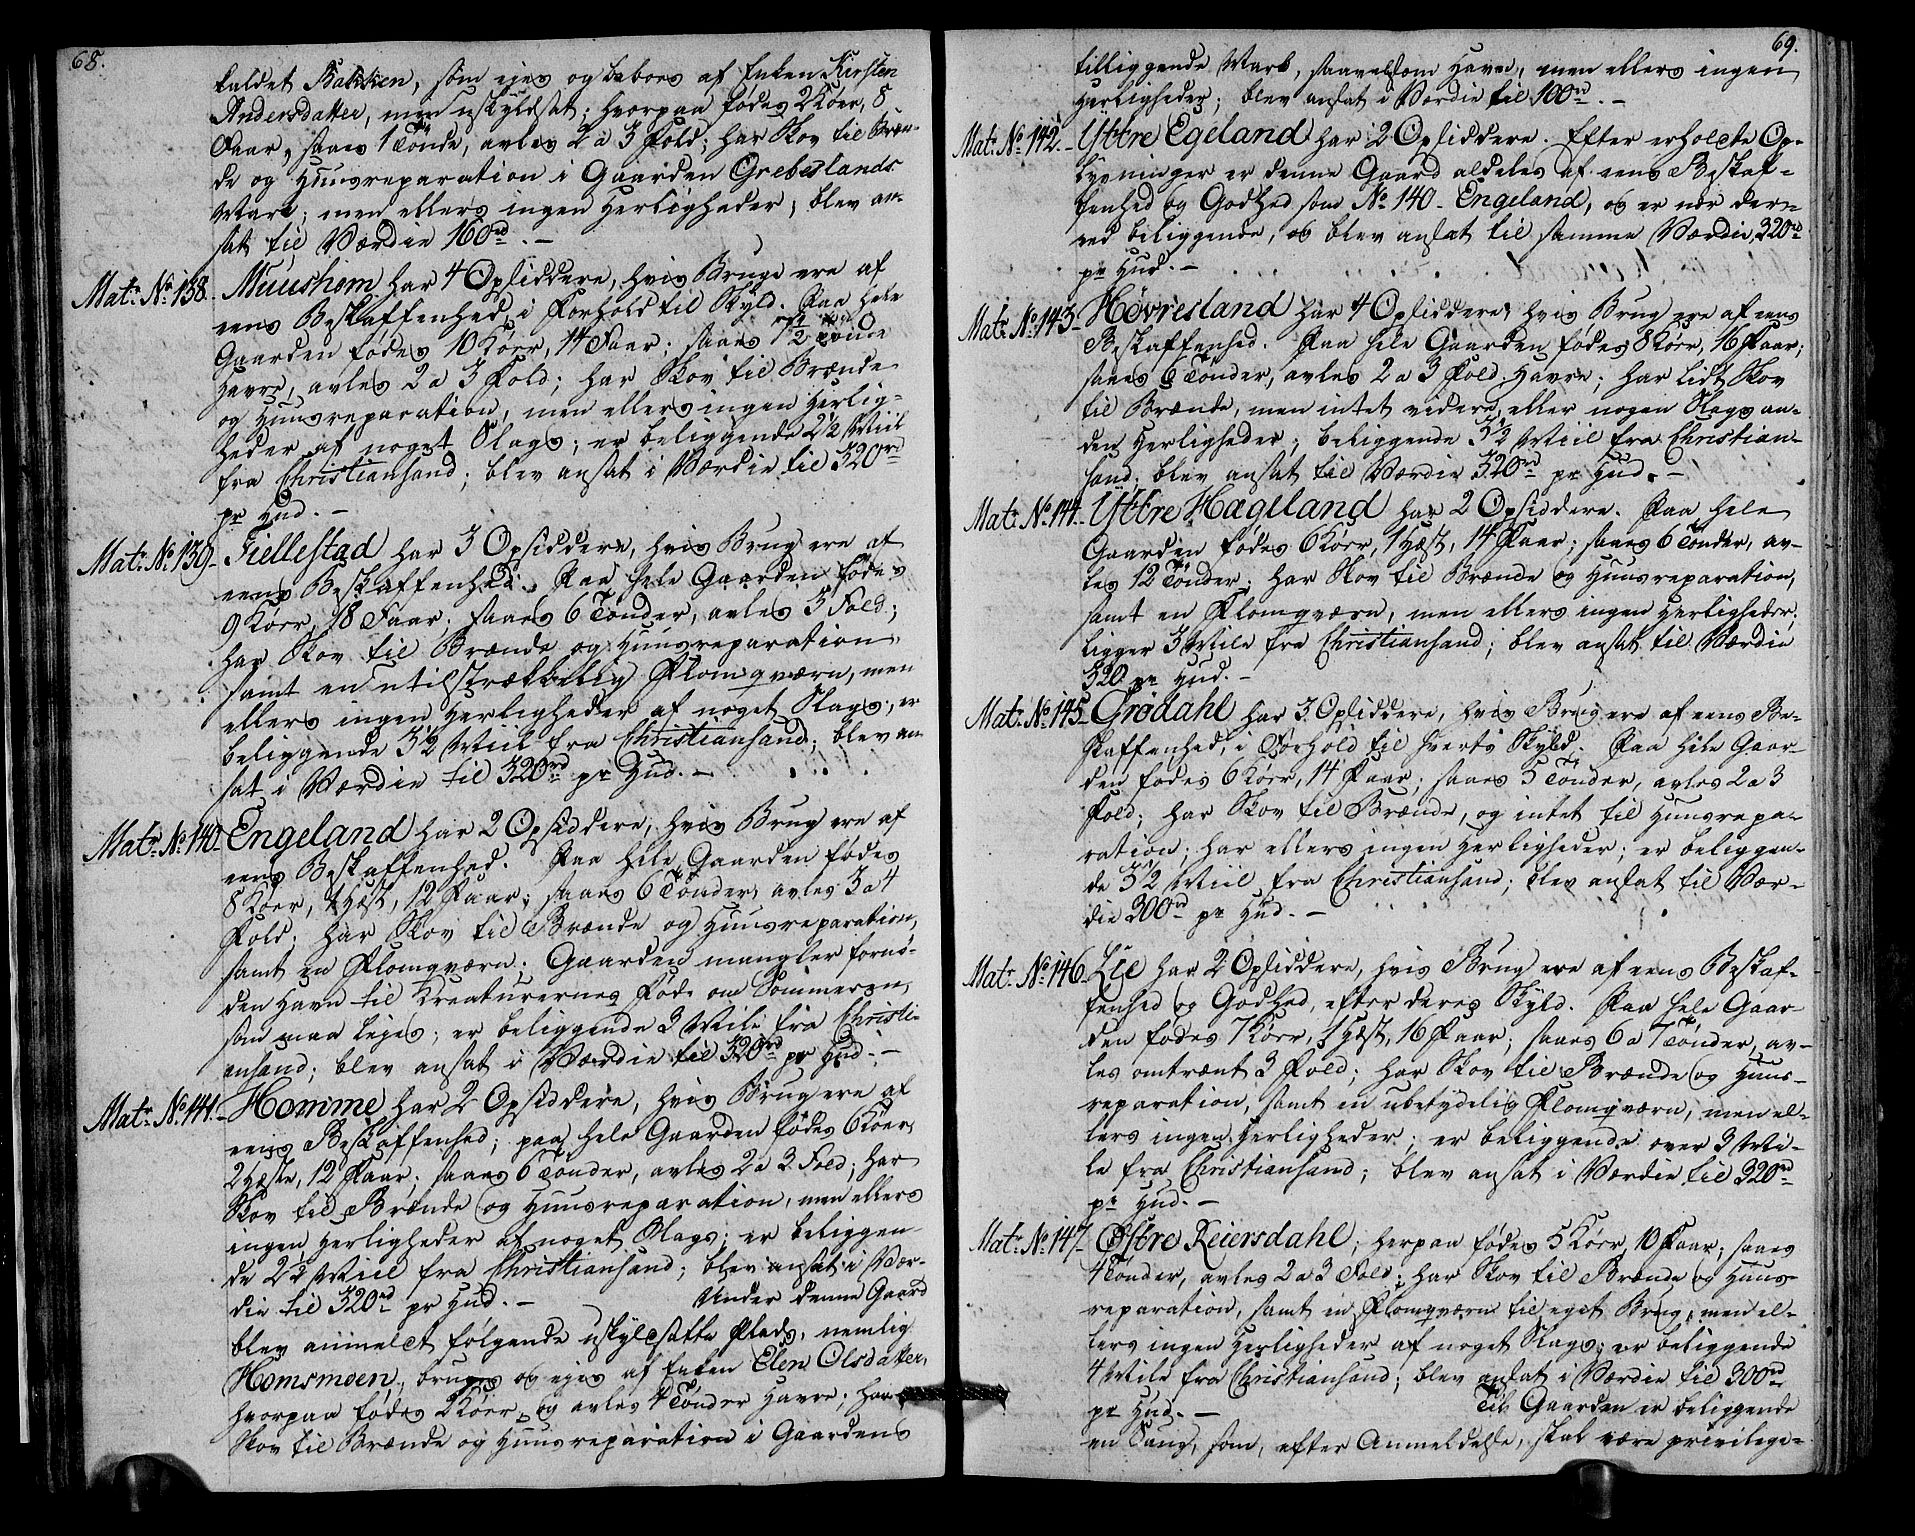 68.
kaldet Bakken, som ejes og beboes af Enken Kirsten
Andersdatter, men uskyldsat; hvorpaa fødes 2 Køer, 8
Faar, saaes 1 Tønde, avles 2 a 3 Fold; har Skov til Bræn-
de og Huusreparation i Gaarden Grebeslands
Mark; men ellers ingen Herligheder; blev an-
sat til Værdie 160rd. –
Matr. No. 138. Muushom har 4 Opsiddere, hvis Brug ere af
eens Beskaffenhed, i Forhold til Skyld. Paa hele
Gaarden fødes 10 Køer, 14 Faar; saaes 7 1/2 Tønde
Havre, avles 2 a 3 Fold; har Skov til Brænde
og Huusreparation, men ellers ingen Herlig-
heder af noget Slags; er beliggende 2 1/2 Miil
fra Christiansand; blev ansat i Værdie til 320rd
pr Hud. –
Matr. No. 139. Fiellestad har 3 Opsiddere, hvis Brug ere af
eens Beskaffenhed. Paa hele Gaarden fødes
9 Køer, 18 Faar; saaes 6 Tønder, avles 3 Fold;
har Skov til Brænde og Huusreparation,
samt en utilstrækkelig Flomqværn, men
ellers ingen Herligheder af noget Slags; er
beliggende 3 1/2 Miil fra Christiansand; blev an-
sat i Værdie til 320rd pr Hud. –
Matr. No. 140. Engeland har 2 Opsiddere, hvis Brug ere af
eens Beskaffenhed. Paa hele Gaarden fødes
8 Køer, 1 Hæst, 12 Faar; saaes 6 Tønder, avles 3 a 4
Fold; har Skov til Brænde og Huusreparation,
samt en Flomqværn; Gaarden mangler fornø-
den Havn til Kreaturernes Føde om Sommeren,
som maa lejes; er beliggende 3 Miile fra Christi-
ansand; blev ansat i Værdie til 320rd pr Hud. –
Matr. No. 141. Homme har 2 Opsiddere, hvis Brug ere af
eens Beskaffenhed; paa hele Gaarden fødes 6 Køer,
2 Hæste, 12 Faar; saaes 6 Tønder, avles 2 a 3 Fold; har
Skov til Brænde og Huusreparation, men ellers
ingen Herligheder af noget Slags; er beliggen-
de 2 1/2 Miil fra Christiansand; blev ansat i Vær-
die til 320rd pr Hud. – Under denne Gaard
blev anmeldt følgende uskyldsatte Plads, nemlig
Homsmoen, bruges og ejes af Enken Elen Olsdatter,
hvorpaa fødes 2 Køer, og avles 4 Tønder Havre; har
Skov til Brænde og Huusreparation i Gaardens
69.
tilliggende Mark, saavelsom Havn, men ellers ingen
Herligheder; blev ansat i Værdie til 100rd. –
Matr. No. 142. Yttre Egeland har 2 Opsiddere. Efter erholdte Op-
lysninger er denne Gaard aldeles af eens Beskaf-
fenhed og Godhed som No. 140 Engeland, og er nær der-
ved beliggende, og blev ansat til samme Værdie, 320rd
pr Hud. –
Matr. No. 143. Høvresland har 4 Opsiddere, hvis Brug ere af eens
Beskaffenhed. Paa hele Gaarden fødes 8 Køer, 16 Faar;
saaes 6 Tønder, avles 2 a 3 Fold Havre; har lidt Skov
til Brænde, men intet videre, eller nogen Slags an-
den Herligheder; beliggende 3 1/2 Miil fra Christian-
sand; blev ansat til Værdie 320rd pr Hud. –
Matr. No. 144. Yttre Hægeland har 2 Opsiddere. Paa hele
Gaarden fødes 6 Køer, 1 Hæst, 14 Faar; saaes 6 Tønder, av-
les 12 Tønder; har Skov til Brænde og Huusreparation,
samt en Flomqværn, men ellers ingen Herligheder;
ligger 3 Miile fra Christiansand; blev ansat til Værdie
320 pr Hud. –
Matr. No. 145. Grødahl har 3 Opsiddere, hvis Brug ere af eens Be-
skaffenhed, i Forhold til hverts Skyld. Paa hele Gaar-
den fødes 6 Køer, 14 Faar; saaes 5 Tønder, avles 2 a 3
Fold; har Skov til Brænde, og intet til Huusrepa-
ration; har ellers ingen Herligheder; er beliggen-
de 3 1/2 Miil fra Christiansand; blev ansat til Vær-
die 300rd pr Hud. –
Matr. No. 146. Lie har 2 Opsiddere, hvis Brug ere af eens Beskaf-
fenhed og Godhed, efter deres Skyld. Paa hele Gaar-
den fødes 7 Køer, 1 Hæst, 16 Faar; saaes 6 a 7 Tønder, av-
les omtrænt 3 Fold; har Skov til Brænde og Huus-
reparation, samt en ubetydelig Flomqværn, men el-
lers ingen Herligheder; er beliggende over 3 Mi-
le fra Christiansand; blev ansat i Værdie til 320rd
pr Hud. –
Matr. No. 147. Østre Reiersdahl; herpaa fødes 5 Køer, 10 Faar; saaes
4 Tønder, avles 2 a 3 Fold; har Skov til Brænde og Huus-
reparation, samt en Flomqværn til eget Brug, men el-
lers ingen Herligheder af noget Slags; er beliggende
4 Miile fra Christiansand; blev ansat i Værdie til 300rd
pr Hud. – Til Gaarden er beliggende
en Saug, som, efter Anmeldelse, skal være privilege-